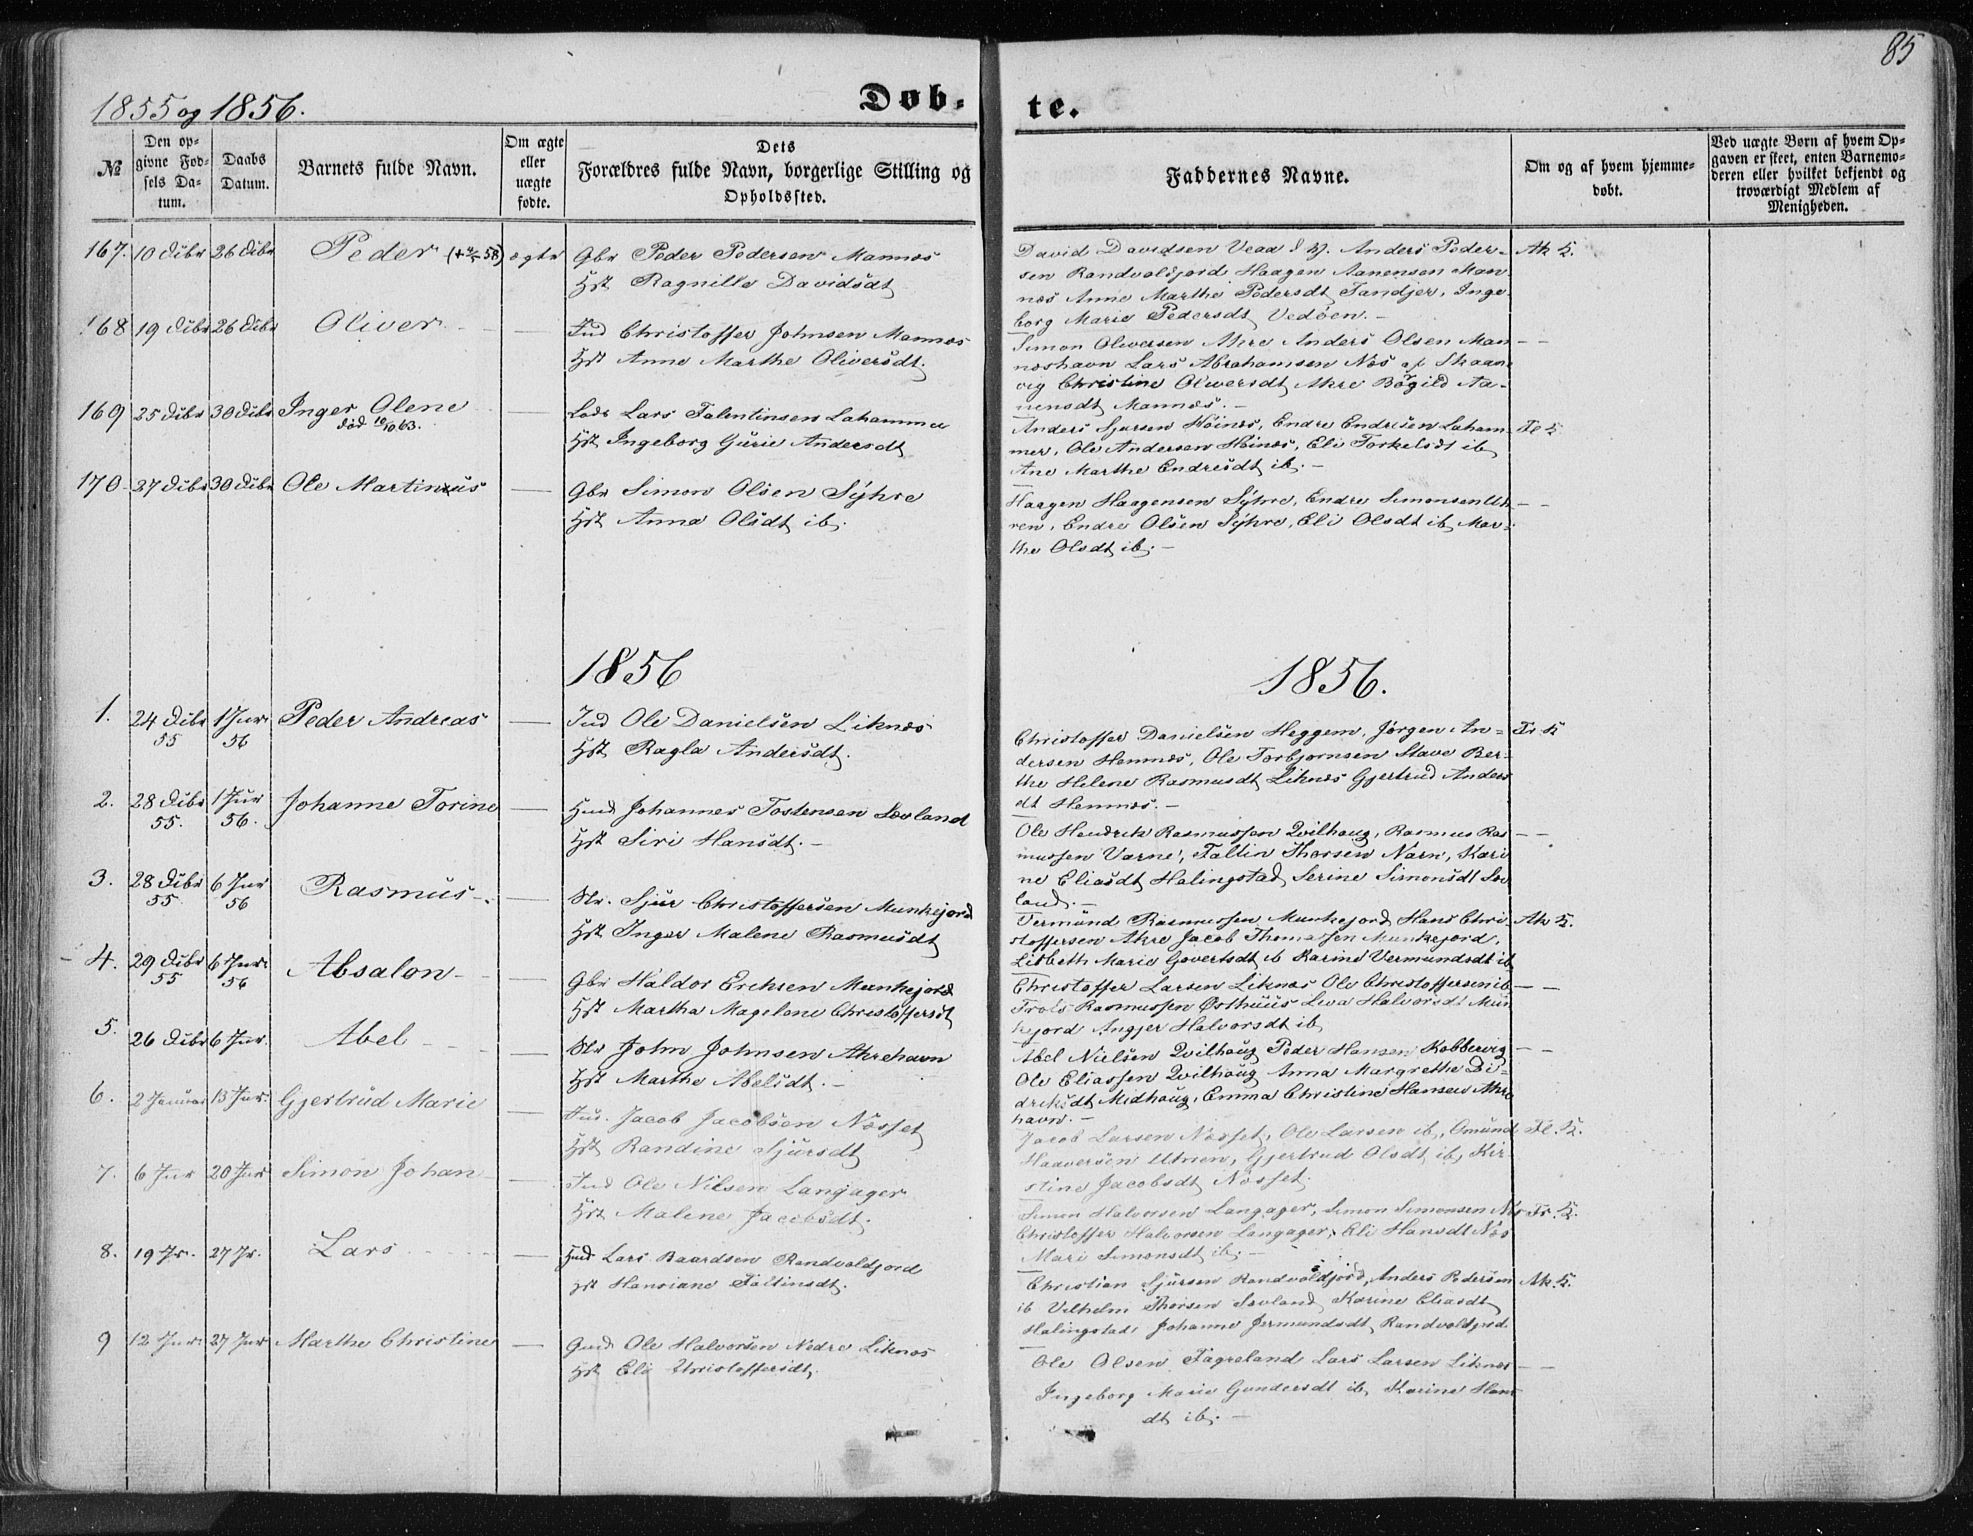 85
1855 og 1856.
Døb-
te.
№
Den op-
givne Fød-
sels Da-
tum.
Daabs
Datum.
Barnets fulde Navn.
Om ægte
eller
uægte
fødte.
Dets
Forældres fulde Navn, borgerlige Stilling og
Opholdssted.
Faddernes Navne.
Om og af hvem hjemme-
døbt.
Ved uægte Børn af hvem Op-
gaven er skeet, enten Barnemo-
deren eller hvilket bekjendt og
troværdigt Medlem af
Menigheden.
167. 10 Dibr 26 Dibr Peder ægte Gbr Peder Pedersen Mannes
Hst Ragnille Davidsdt
David Davidsen Anders Peder-
sen Randvoldfjord Haagen Aanensen Man-
næs Anne Marthe Pedersdt Tandjer, Inge-
borg Marie Pedersdt Vedøen. –
Ak K.
168 19 Dibr 26 Dibr Oliver — Ind Christoffer Johnsen Mannæs
Hst Anne Marthe Oliversdt.
Simon Oliversen Akre Anders Olsen Man-
næshavn Lars Abrahamsen Næs af Skaane-
vig Christine Oliversdt Akre Børgild Aa-
nensdt Mannæs. –
– –
169 25 Dibr 30 Dibr Inger Olene
død 10/10 63.
— Lods Lars Falentinsen Lahammer
Hst Ingeborg Gurie Andersdt
Anders Sjursen Høines, Endre Endresen Laham-
mer, Ole Andersen Høinæs, Eli Torkelsdt ib
Ane Marthe Endresdt ib. –
Fe K
170 27 Dibr 30 Dibr Ole Martinus — Gbr Simon Olsen Syhre
Hst Anna Olsdt ib.
Haagen Haagensen Syhre, Endre Simonsen Ut-
ren, Endre Olsen Syhre, Eli Olsdt ib, Mar-
the Olsdt ib. –
– –
1856
1856.
1. 24 Dibr 55 1 Jnr 56 Peder Andreas — Ind Ole Danielsen Liknæs
Hst Ragla Andersdt.
Christoffer Danielsen Heggem, Jørgen An-
dersen Hemnæs, Ole Torbjørnsen Stave Ber-
the Helene Rasmusdt Liknæs Gjertrud Anders-
dt Hemnæs. –
Fr K
2. 28 Dibr 55. 1 Jnr 56. Johanne Torine — Hmd Johannes Tostensen Sævland
Hst Siri Hansdt. –
Ole Hendrik Rasmussen Qvilhaug, Rasmus Ras-
mussen Varne, Faltin Thorsen Narn, Kari-
ne Eliasdt Halingstad Serine Simonsdt Sæv-
land. –
– –
3. 28 Dibr 55 6 Jnr 56 Rasmus — Str. Sjur Christoffersen Munkejord
Hst Inger Malene Rasmusdt
Vermund Rasmussen Munkejord Hans Chri-
stoffersen Akre Jacob Thomassen Munkejord,
Lisbeth Marie Govertsdt ib Karine Vermundsdt ib
Ak K.
4. 29 Dibr 55 6 Jnr. 56 Absalon — Gbr Haldor Erichsen Munkejord
Hst Martha Magelene Christoffersdt
Christoffer Larsen Liknæs Ole Christoffersen ib
Trols Rasmussen Østhuus Leva Halvorsdt Mun-
kejord Angjer Halvorsdt ib
– –
5. 26 Dibr 6 Jnr. Abel — Str John Johnsen Akrehavn
Hst Marthe Abelsdt. –
Abel Nielsen Qvilhaug Peder Hansen Kobbervig
Ole Eliassen Qvilhaug Anna Margrethe Di-
driksdt Midhaug, Emma Christine Hansen Akre-
havn. –
– –
6. 2 Januar 13 Jnr. Gjertrud Marie — Ind. Jacob Jacobsen Nøsset
Hst Randine Sjursdt
Jacob Larsen Nøsset, Ole Larsen ib, Omund
Haaversen Utvien, Gjertrud Olsdt ib, Kir-
stine Jacobsdt Nøsset.
Fe. K.
7. 6 Jnr 20 Jnr Simon Johan — Ind Ole Nilsen Langager
Hst Malene Jacobsdt.
Simon Halvorsen Langager, Simon Simonsen Næs
Christoffer Halvorsen Langager, Eli Hansdt Næs
Mari Simonsdt ib. –
Fr. K.
8. 19 Jr. 27 Jr. Lars — Hmd Lars Baardsen Randvoldfjord
Hst Hansiane Faltinsdt.
Christian Sjursen Randvoldfjord, Anders Pedersen
ib Vilhelm Thorsen Sævland, Karine Eliasdt
Halingstad, Johanne Jermundsdt, Randvoldfjord.
Ak. K.
9 12 Jnr. 27 Jnr Marthe Christine — Gmd Ole Halvorsen Nedre Liknæs
Hst Eli Christoffersdt.
Ole Olsen Fagreland Lars Larsen Liknæs
Ingeborg Marie Gundersdt ib, Karine Hans-
dt ib. –
– –